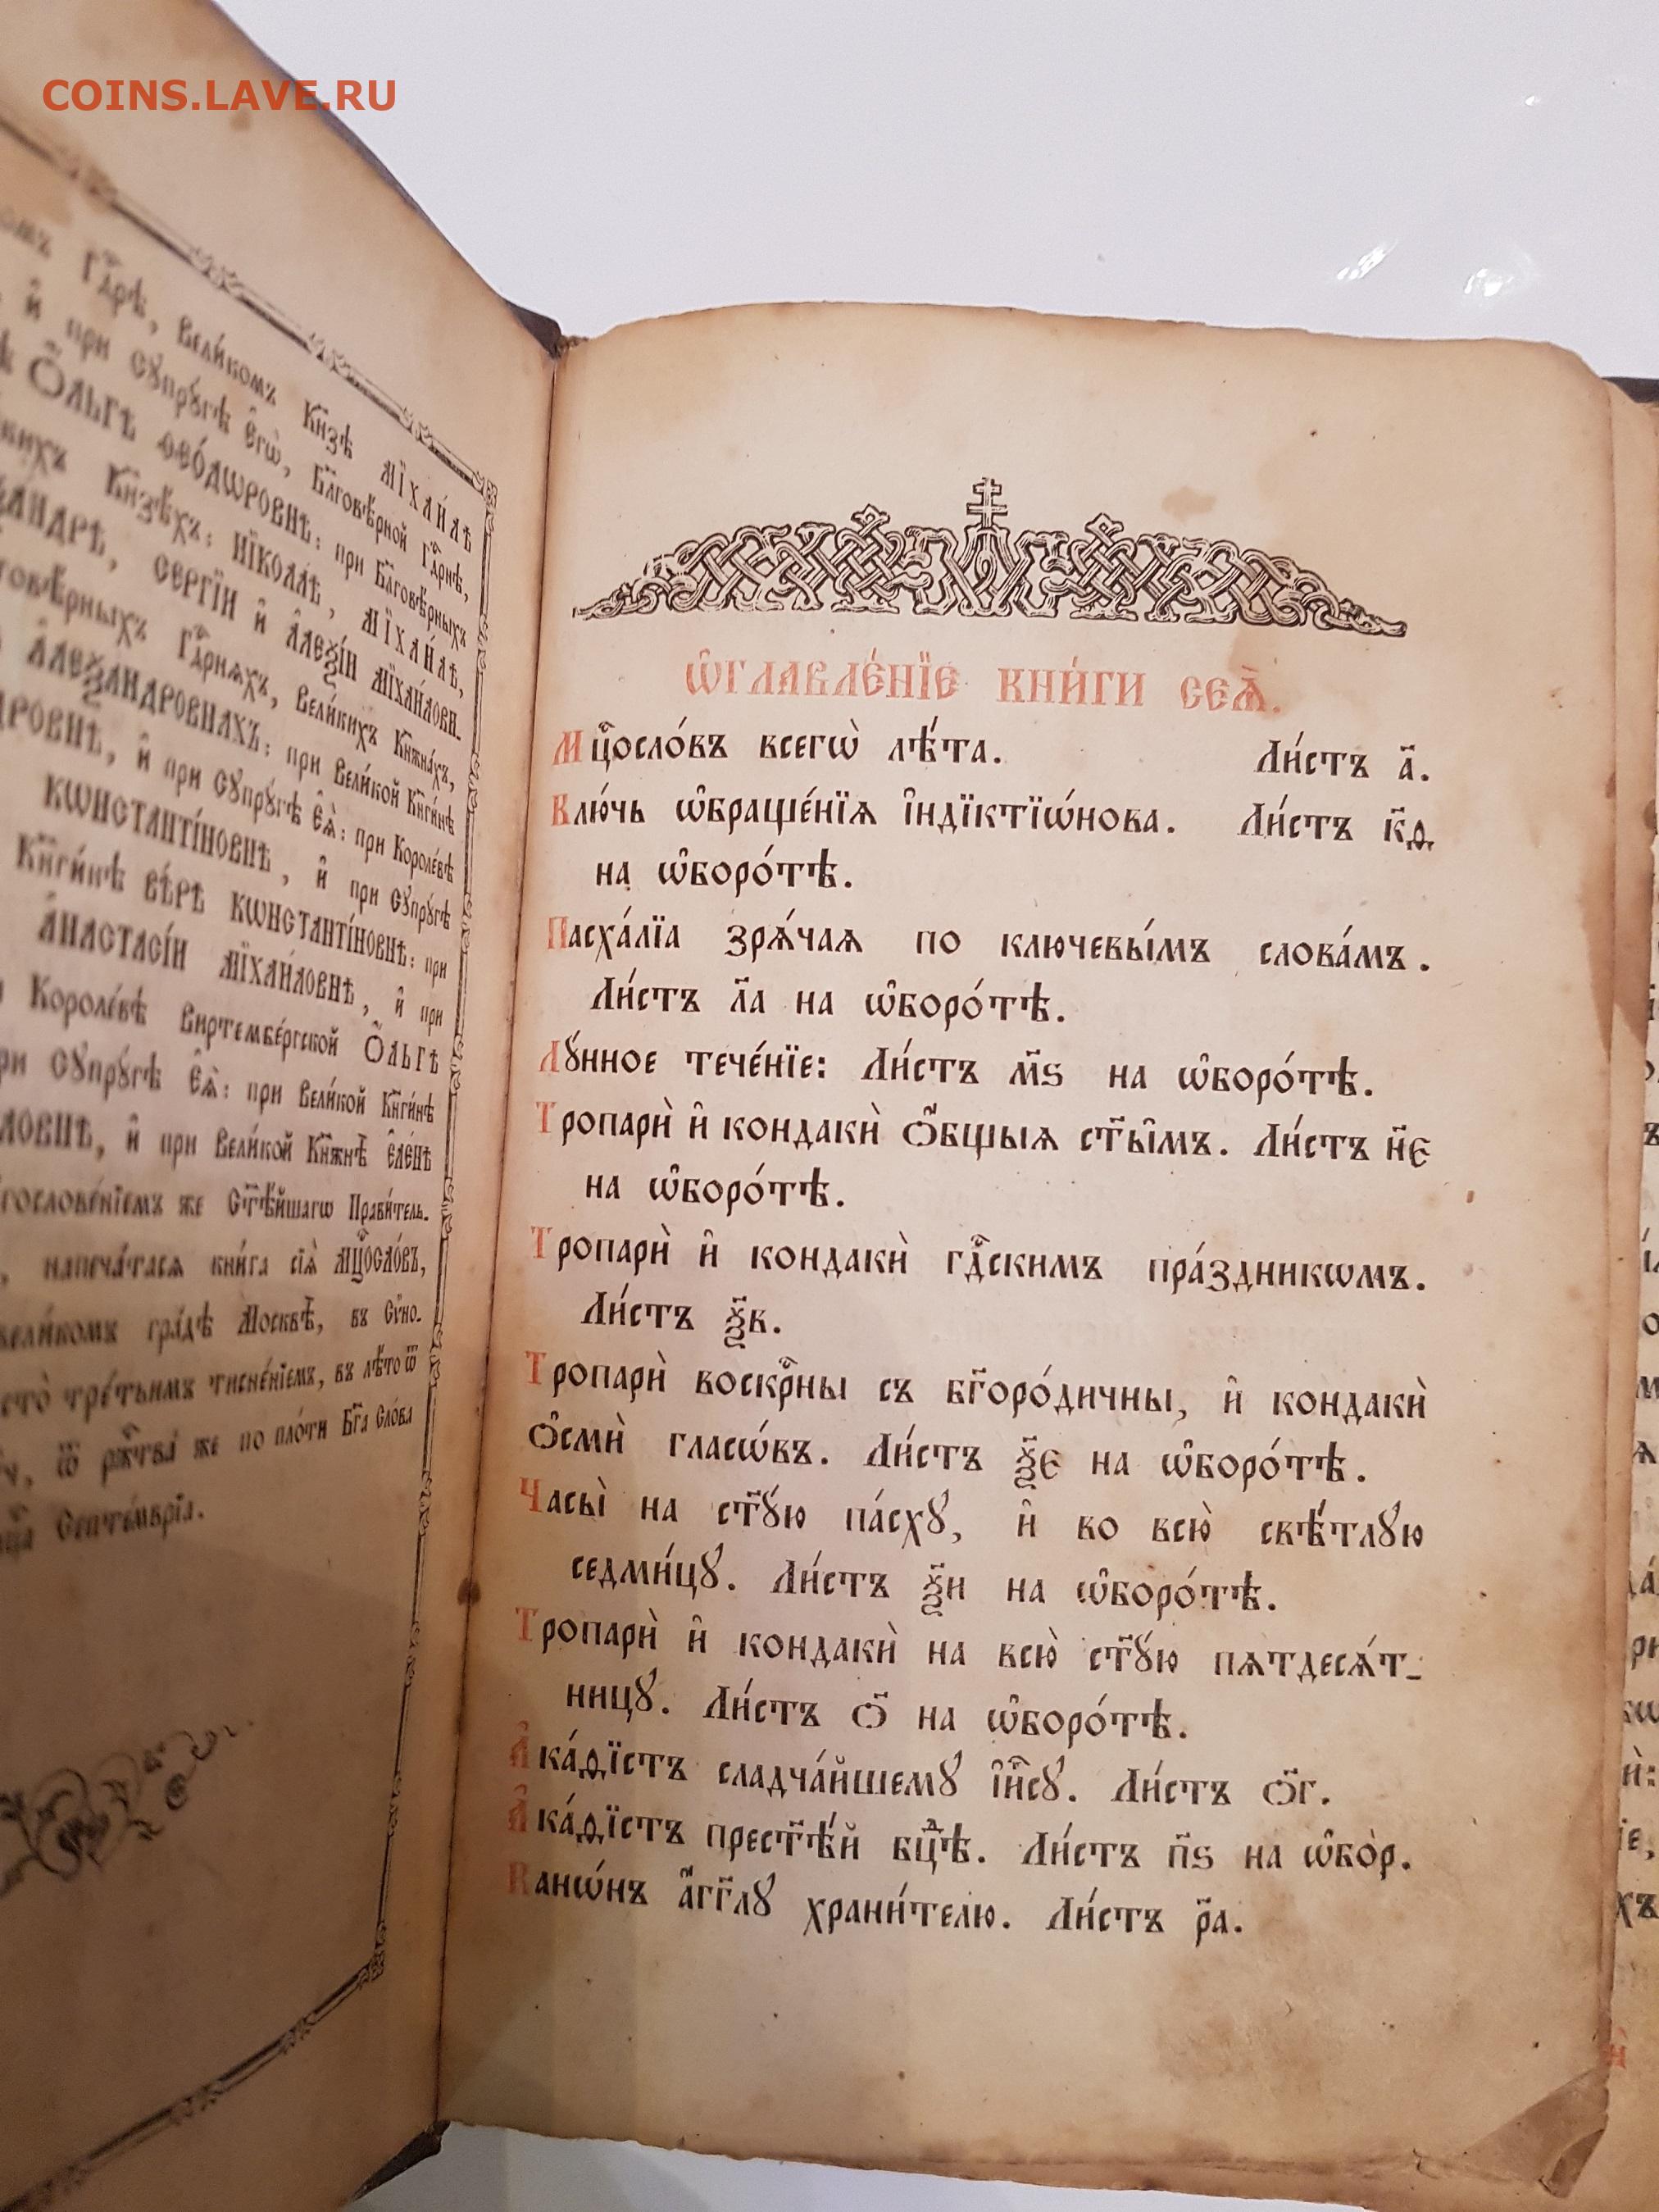 COINS.LAVE.RU
Гдⷭ҇рѣ, Вели́комъ Кн҃зѣ Мїхаи́лѣ
и҆ при Сꙋпрꙋ́гѣ Е҆гѡ̀, Бл҃говѣ́рной Гдⷭ҇рнѣ,
Ѻ҆́льгѣ Ѳео́дѡровнѣ: при Бл҃говѣ́рныхъ
Кн҃зѣхъ: Нїкола́ѣ, Мїхаи́лѣ,
Серѓїи и҆ А҆леѯі́и Мїха́йлови-
Гдⷭ҇рняхъ, Вели́кихъ Кн҃жна́хъ,
А҆леѯа́ндровнахъ: при Вели́кой Кн҃ги́нѣ
и҆ при Сꙋпрꙋ́гѣ Е҆ѧ̀: при Короле́вѣ
Кѡнстанті́новнѣ, и҆ при Сꙋпрꙋ́гѣ
Кн҃ги́нѣ Вѣ́рѣ Кѡнстанті́новнѣ: при
А҆настасі́и Мїха́йловнѣ, и҆ при
Короле́вѣ Виртембе́ргской Ѻ҆́льгѣ
Сꙋпрꙋ́гѣ Е҆ѧ̀: при Вели́кой Кн҃ги́нѣ
и҆ при Вели́кой Кн҃жнѣ̀ Е҆ле́нѣ
же Ст҃ѣ́йшагѡ Прави́тель-
напеча́тасѧ кни́га сїѧ̀ Мцⷭ҇осло́въ,
гра́дѣ Москвѣ̀, въ Сѵно-
тре́тьимъ тисне́нїемъ, въ лѣ́то ѿ
ѿ рж҃тва̀ же по пло́ти Бг҃а Сло́ва
Септе́мврїа.
Ѡ҆главле́нїе кни́ги сеѧ̀.
Мцⷭ҇осло́въ всегѡ̀ лѣ́та. Ли́стъ а҃.
Ключь ѡ҆браще́нїѧ і҆ндїктїѡ́нова. Ли́стъ к҃д
на ѡ҆боро́тѣ.
Пасха́лїа зрѧ́чаѧ по ключевы́мъ слова́мъ.
Ли́стъ л҃а на ѡ҆боро́тѣ.
Лꙋ́нное тече́нїе: Ли́стъ м҃ѕ на ѡ҆боро́тѣ.
Тропарѝ и҆ кондакѝ ѻ҆́бщыѧ ст҃ы̑мъ. Ли́стъ н҃є
на ѡ҆боро́тѣ.
Тропарѝ и҆ кондакѝ гдⷭ҇скимъ пра́здникѡмъ.
Ли́стъ ѯ҃в.
Тропарѝ воскрⷭ҇ны съ бг҃оро́дичны, и҆ кондакѝ
ѻ҆смѝ гласѡ́въ. Ли́стъ ѯ҃є на ѡ҆боро́тѣ.
Часы̀ на ст҃ꙋ́ю па́схꙋ, и҆ во всю̀ свѣ́тлꙋю
седми́цꙋ. Ли́стъ ѯ҃и на ѡ҆боро́тѣ.
Тропарѝ и҆ кондакѝ на всю̀ ст҃ꙋ́ю пѧтдесѧ́т-
ницꙋ. Ли́стъ ѻ҃ на ѡ҆боро́тѣ.
А҆ка́ѳїстъ сладча́йшемꙋ і҆и҃сꙋ. Ли́стъ ѻ҃г.
А҆ка́ѳїстъ прест҃ѣ́й бцⷣѣ. Ли́стъ п҃ѕ на ѡ҆бо́р.
Канѡ́нъ а҆́гг҃лꙋ храни́телю. Ли́стъ р҃а.